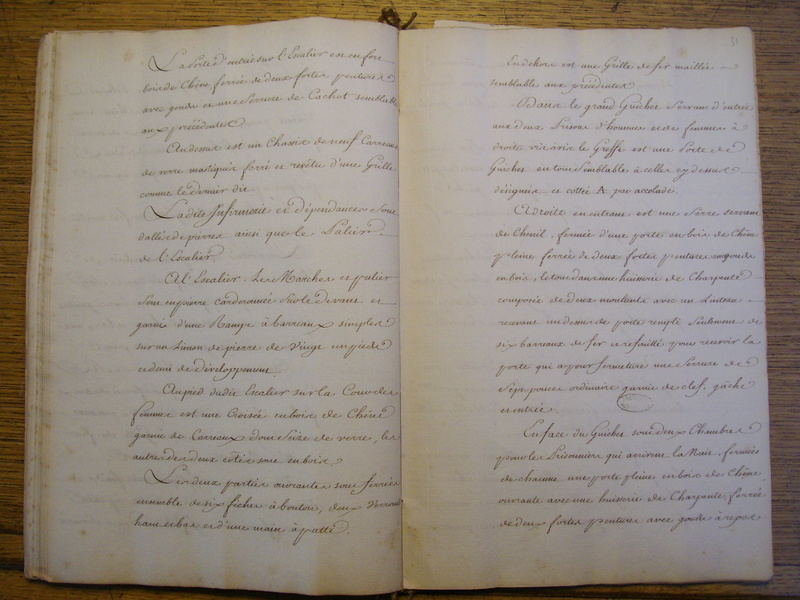 La Porte d'entrée sur l'Escalier est en fort
bois de Chêne ferrée de deux fortes pentures
avec gonds et une Serrure de Cachot semblable
aux précédentes
Audessus est un Chassis de neuf Carreaux
de verre mastiqués ferré et revêtu d'une Grille
comme le dernier dit
La dite Infirmerie et dépendances sont
dallées de pierres ainsi que le Palier
de l'Escalier
A l'Escalier Les Marches et palier
sont en pierre cordonnée sur le devant et
garni d'une Rampe à barreaux simples
sur un Limon de pierre de vingt un pieds
et demi de développement
Au pied dudit Escalier sur la Cour des
femmes est une Croisée en bois de Chêne
garnie de Carreaux dont Seize de verre, les
autres des deux cotés sont en bois
Les deux parties ouvrantes sont ferrées
ensemble de six fiches à boutons, deux Verroux
haut et bas et d'une main à patte
31
En dehors est une Grille de fer maillée
semblable aux précédentes
Dans le grand Guichet Servant d'entrée
aux deux Prisons d'hommes et de femmes à
droite vis avis le Greffe est une Porte de
Guichet en tout Semblable à celles cy dessus
désignées et cottée A par accolade
A Droite en entrant est une Serre servant
de Chenil, fermée d'une porte en bois de Chêne
pleine ferrée de deux fortes pentures
en bois, le tout dans une huisserie de Charpente
composée de deux montants avec un Linteau
recevant un dessus de porte rempli Seulement de
six barreaux de fer et refouillé pour recevoir la
porte qui a pour fermeture une Serrure de
Sept pouces ordinaire garnie de clef, gâche
et entrée
En face du Guichet sont deux Chambres
pour les Prisonniers qui arrivent la Nuit, fermées
de chacune une porte pleine en bois de Chêne
ouvrante avec une huisserie de Charpente ferrée
de deux fortes pentures avec gonds à repos